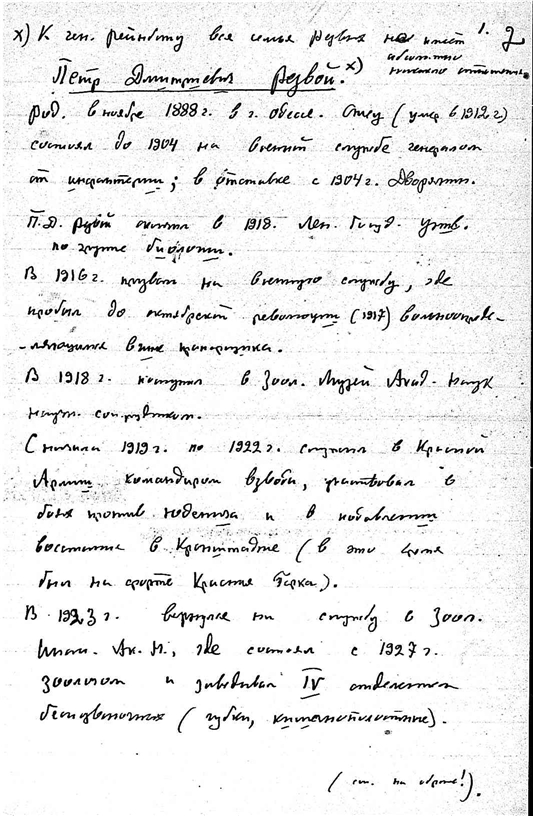 х) К ген. Рейнботу вся семья Резвых не имеет 1. 2
абсолютно
никакого отношения.
Петр Дмитриевич Резвой. х)
Род. в ноябре 1888 г. в г. Одессе. Отец (умер в 1912 г.)
состоял до 1904 на военной службе генералом
от инфантерии; в отставке с 1904 г. Дворянин.
П. Д. Резвой окончил в 1918. Лен. Госуд. Унив.
по группе биологии.
В 1916 г. призван на военную службу, где
пробыл до октябрской революции (1917) вольноопреде-
-ляющимся в чине прапорщика.
В 1918 г. поступил в Зоол. Музей Акад. Наук
научн. сотрудником.
С начала 1919 г. по 1922 г. служил в Красной
Армии командиром взвода, участвовал в
боях против Юденича и в подавлении
восстания в Кронштадте (в это время
был на форте Красная Горка).
В 1923 г. вернулся на службу в Зоол.
Инст. Ак. Н., где состоял с 1927 г.
зоологом и заведывал IV отделением
беспозвоночных (губки, кишечнополостные).
(см. на обороте!).